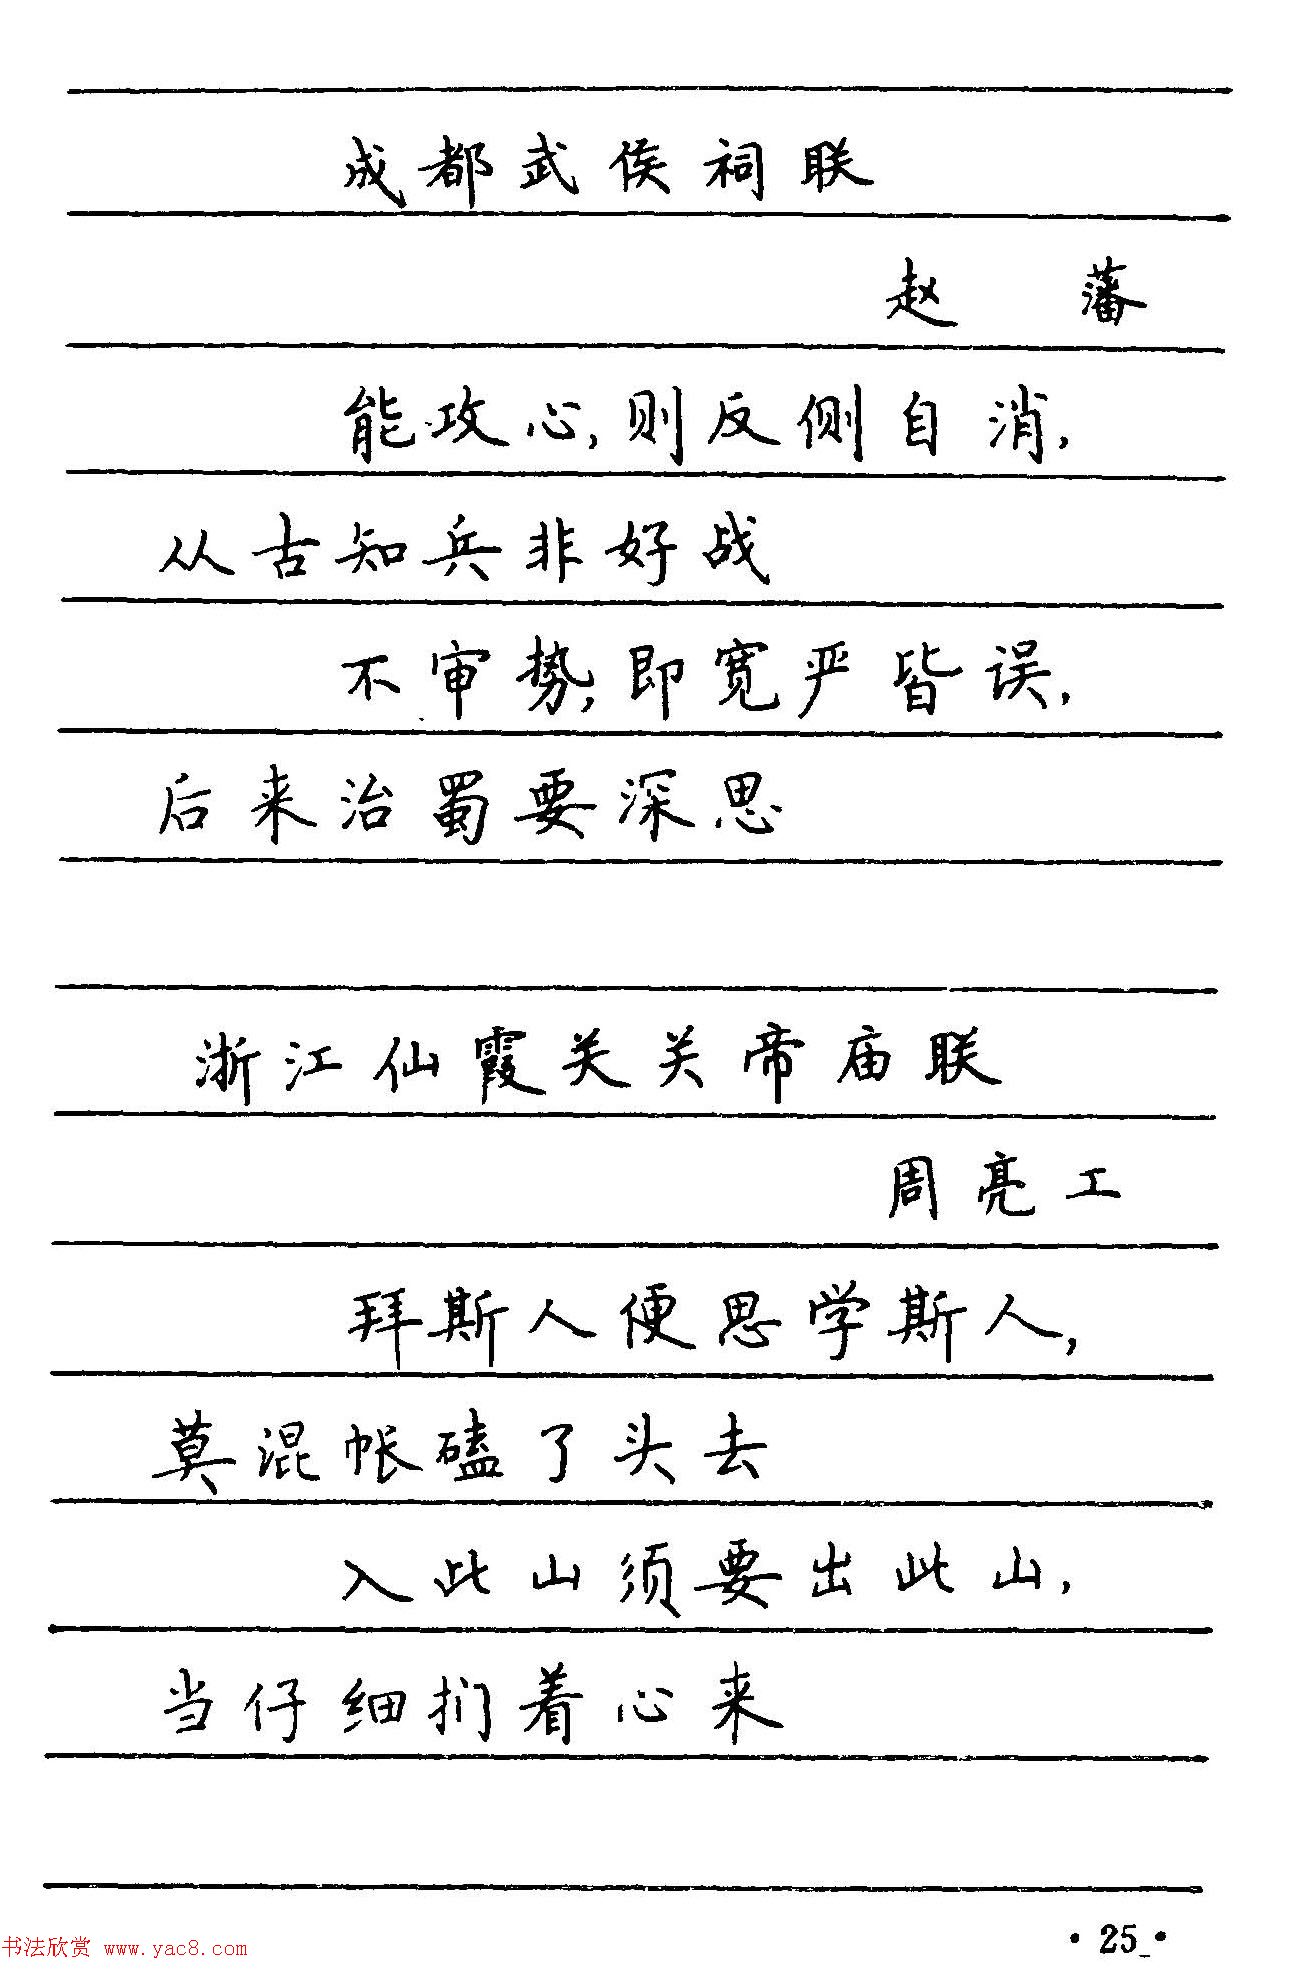 成都武侯祠联
赵 藩
能攻心，则反侧自消，
从古知兵非好战
不审势，即宽严皆误，
后来治蜀要深思
浙江仙霞关关帝庙联
周亮工
拜斯人便思学斯人，
莫混帐磕了头去
入此山须要出此山，
当仔细扪着心来
·25·
书法欣赏 www.yac8.com